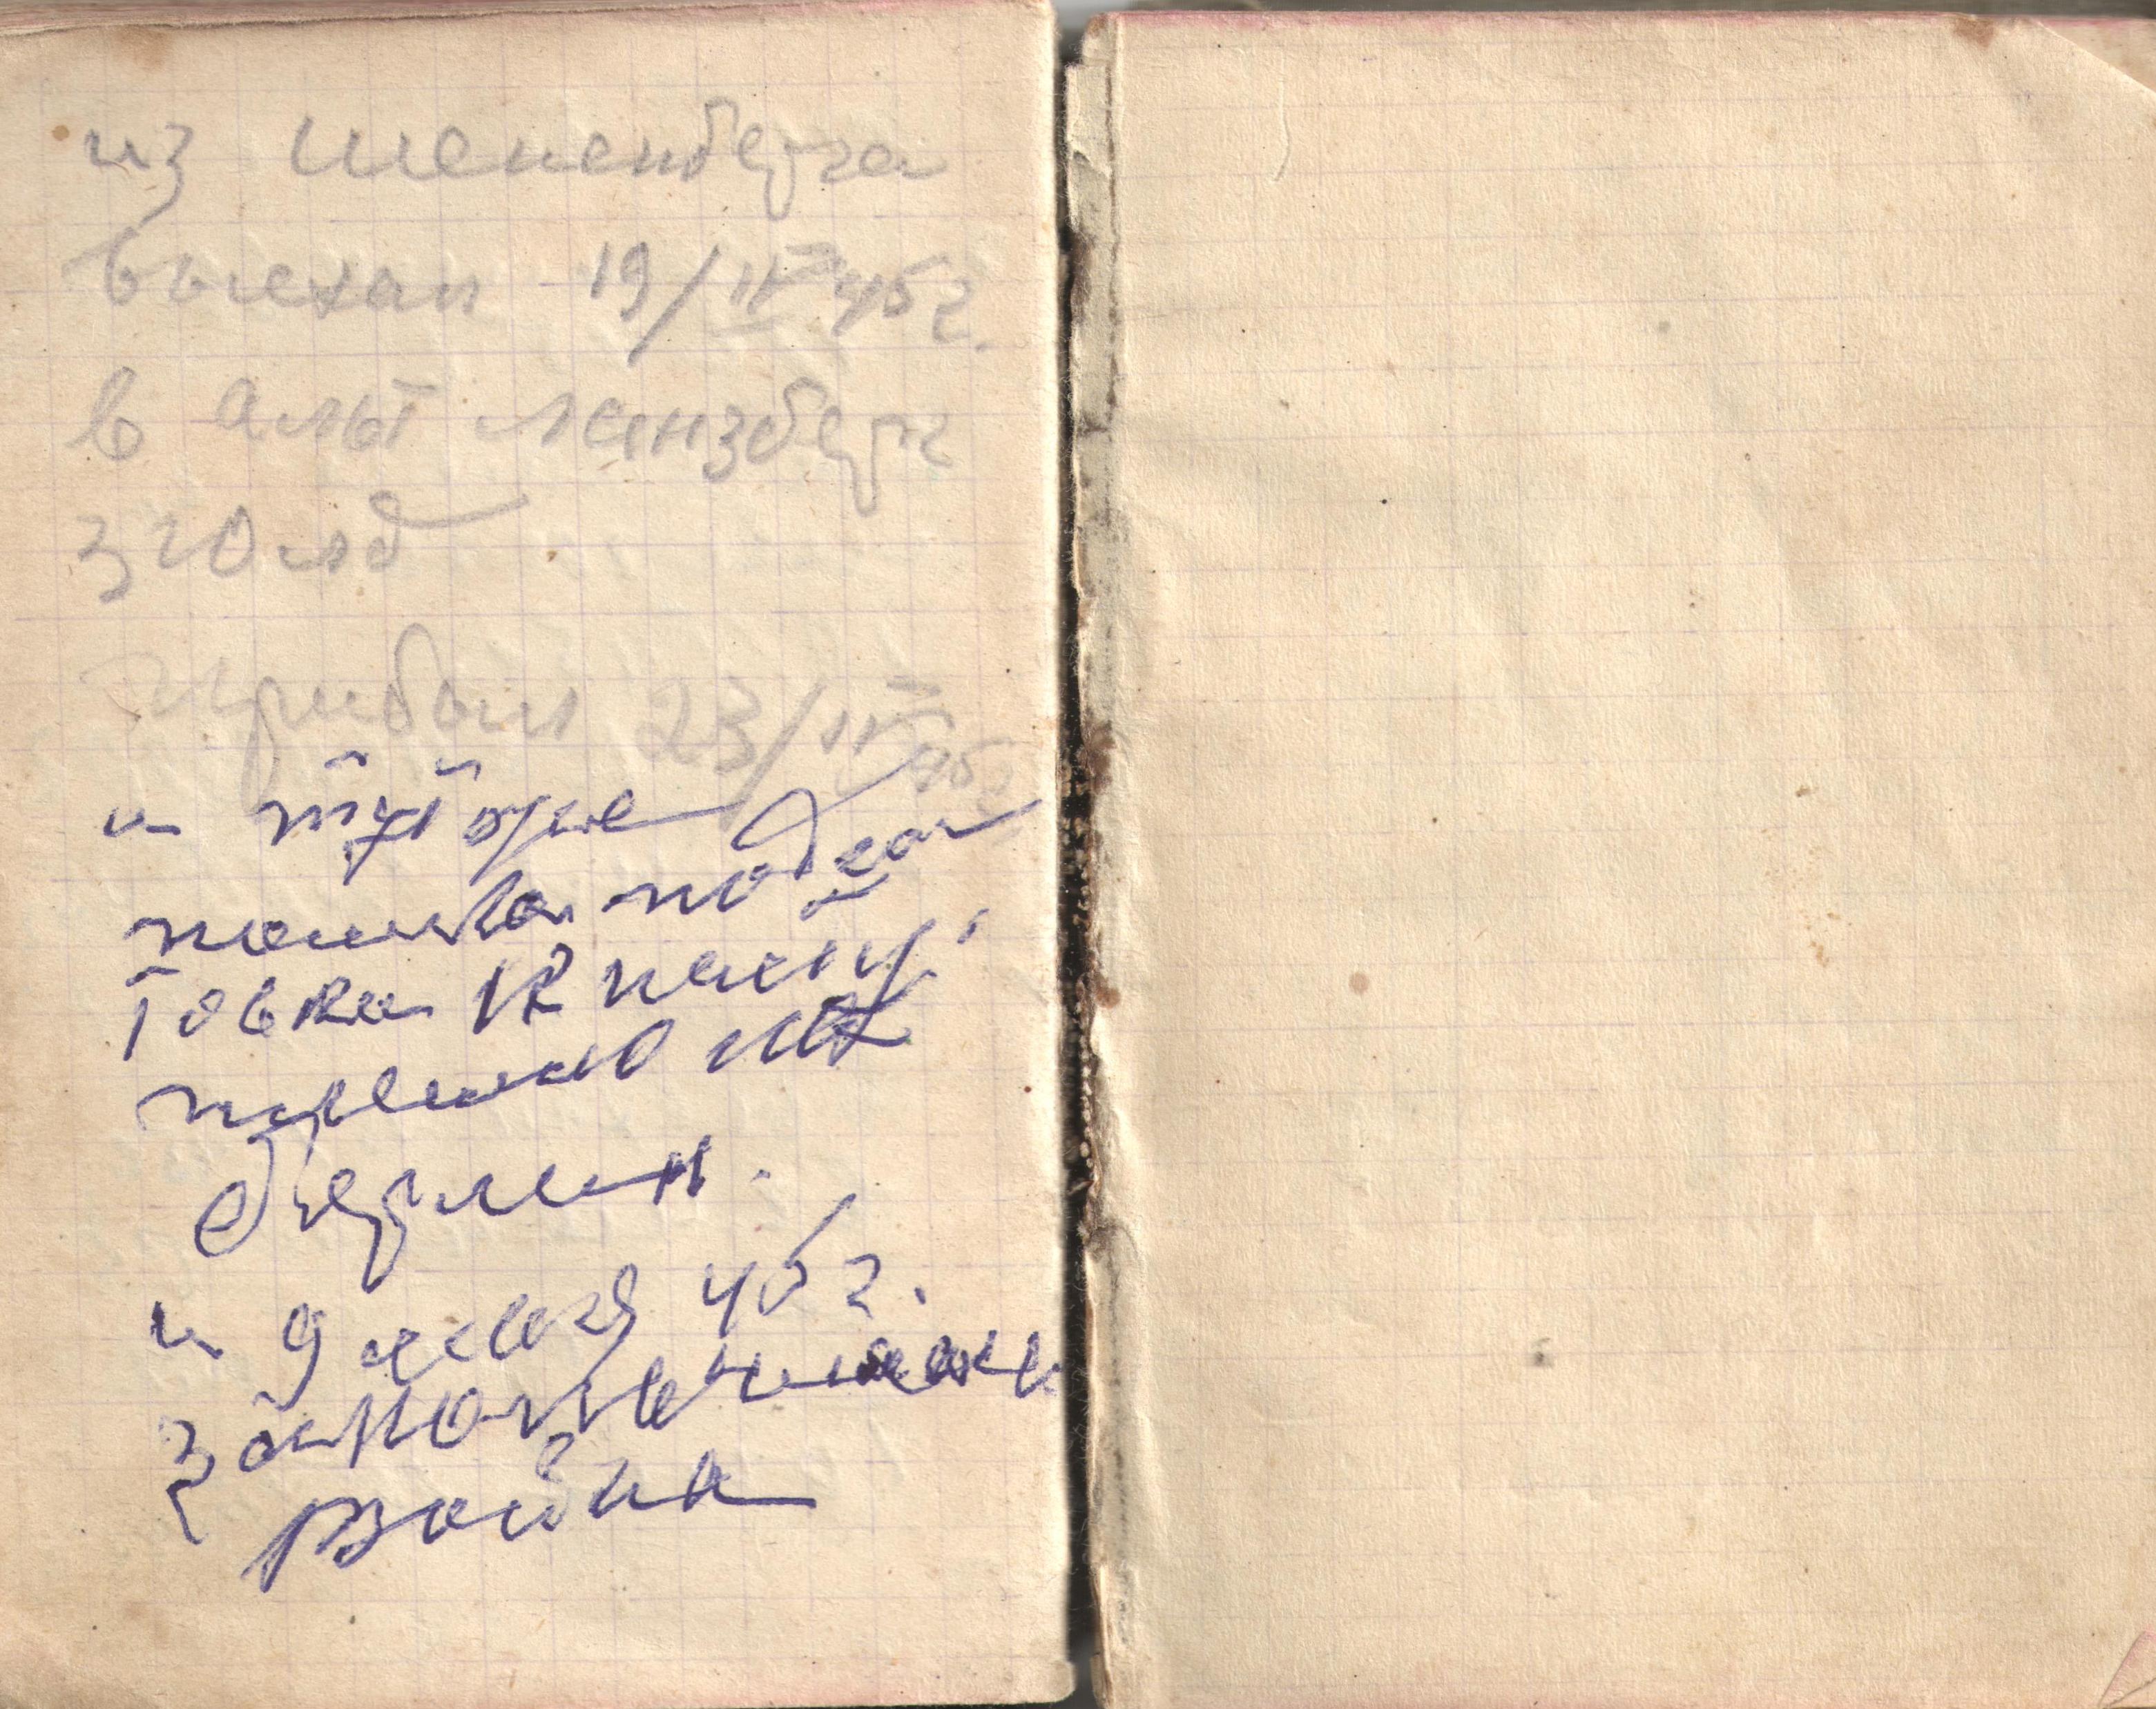 из шененберга
выехал 19/IV 45 г.
в альт лензберг
зголд
прибыл 23/IV 45 г
и тут же
пошла подго
товка к насту
плению на
берлин.
и 9 мая 45 г.
закончилась
война